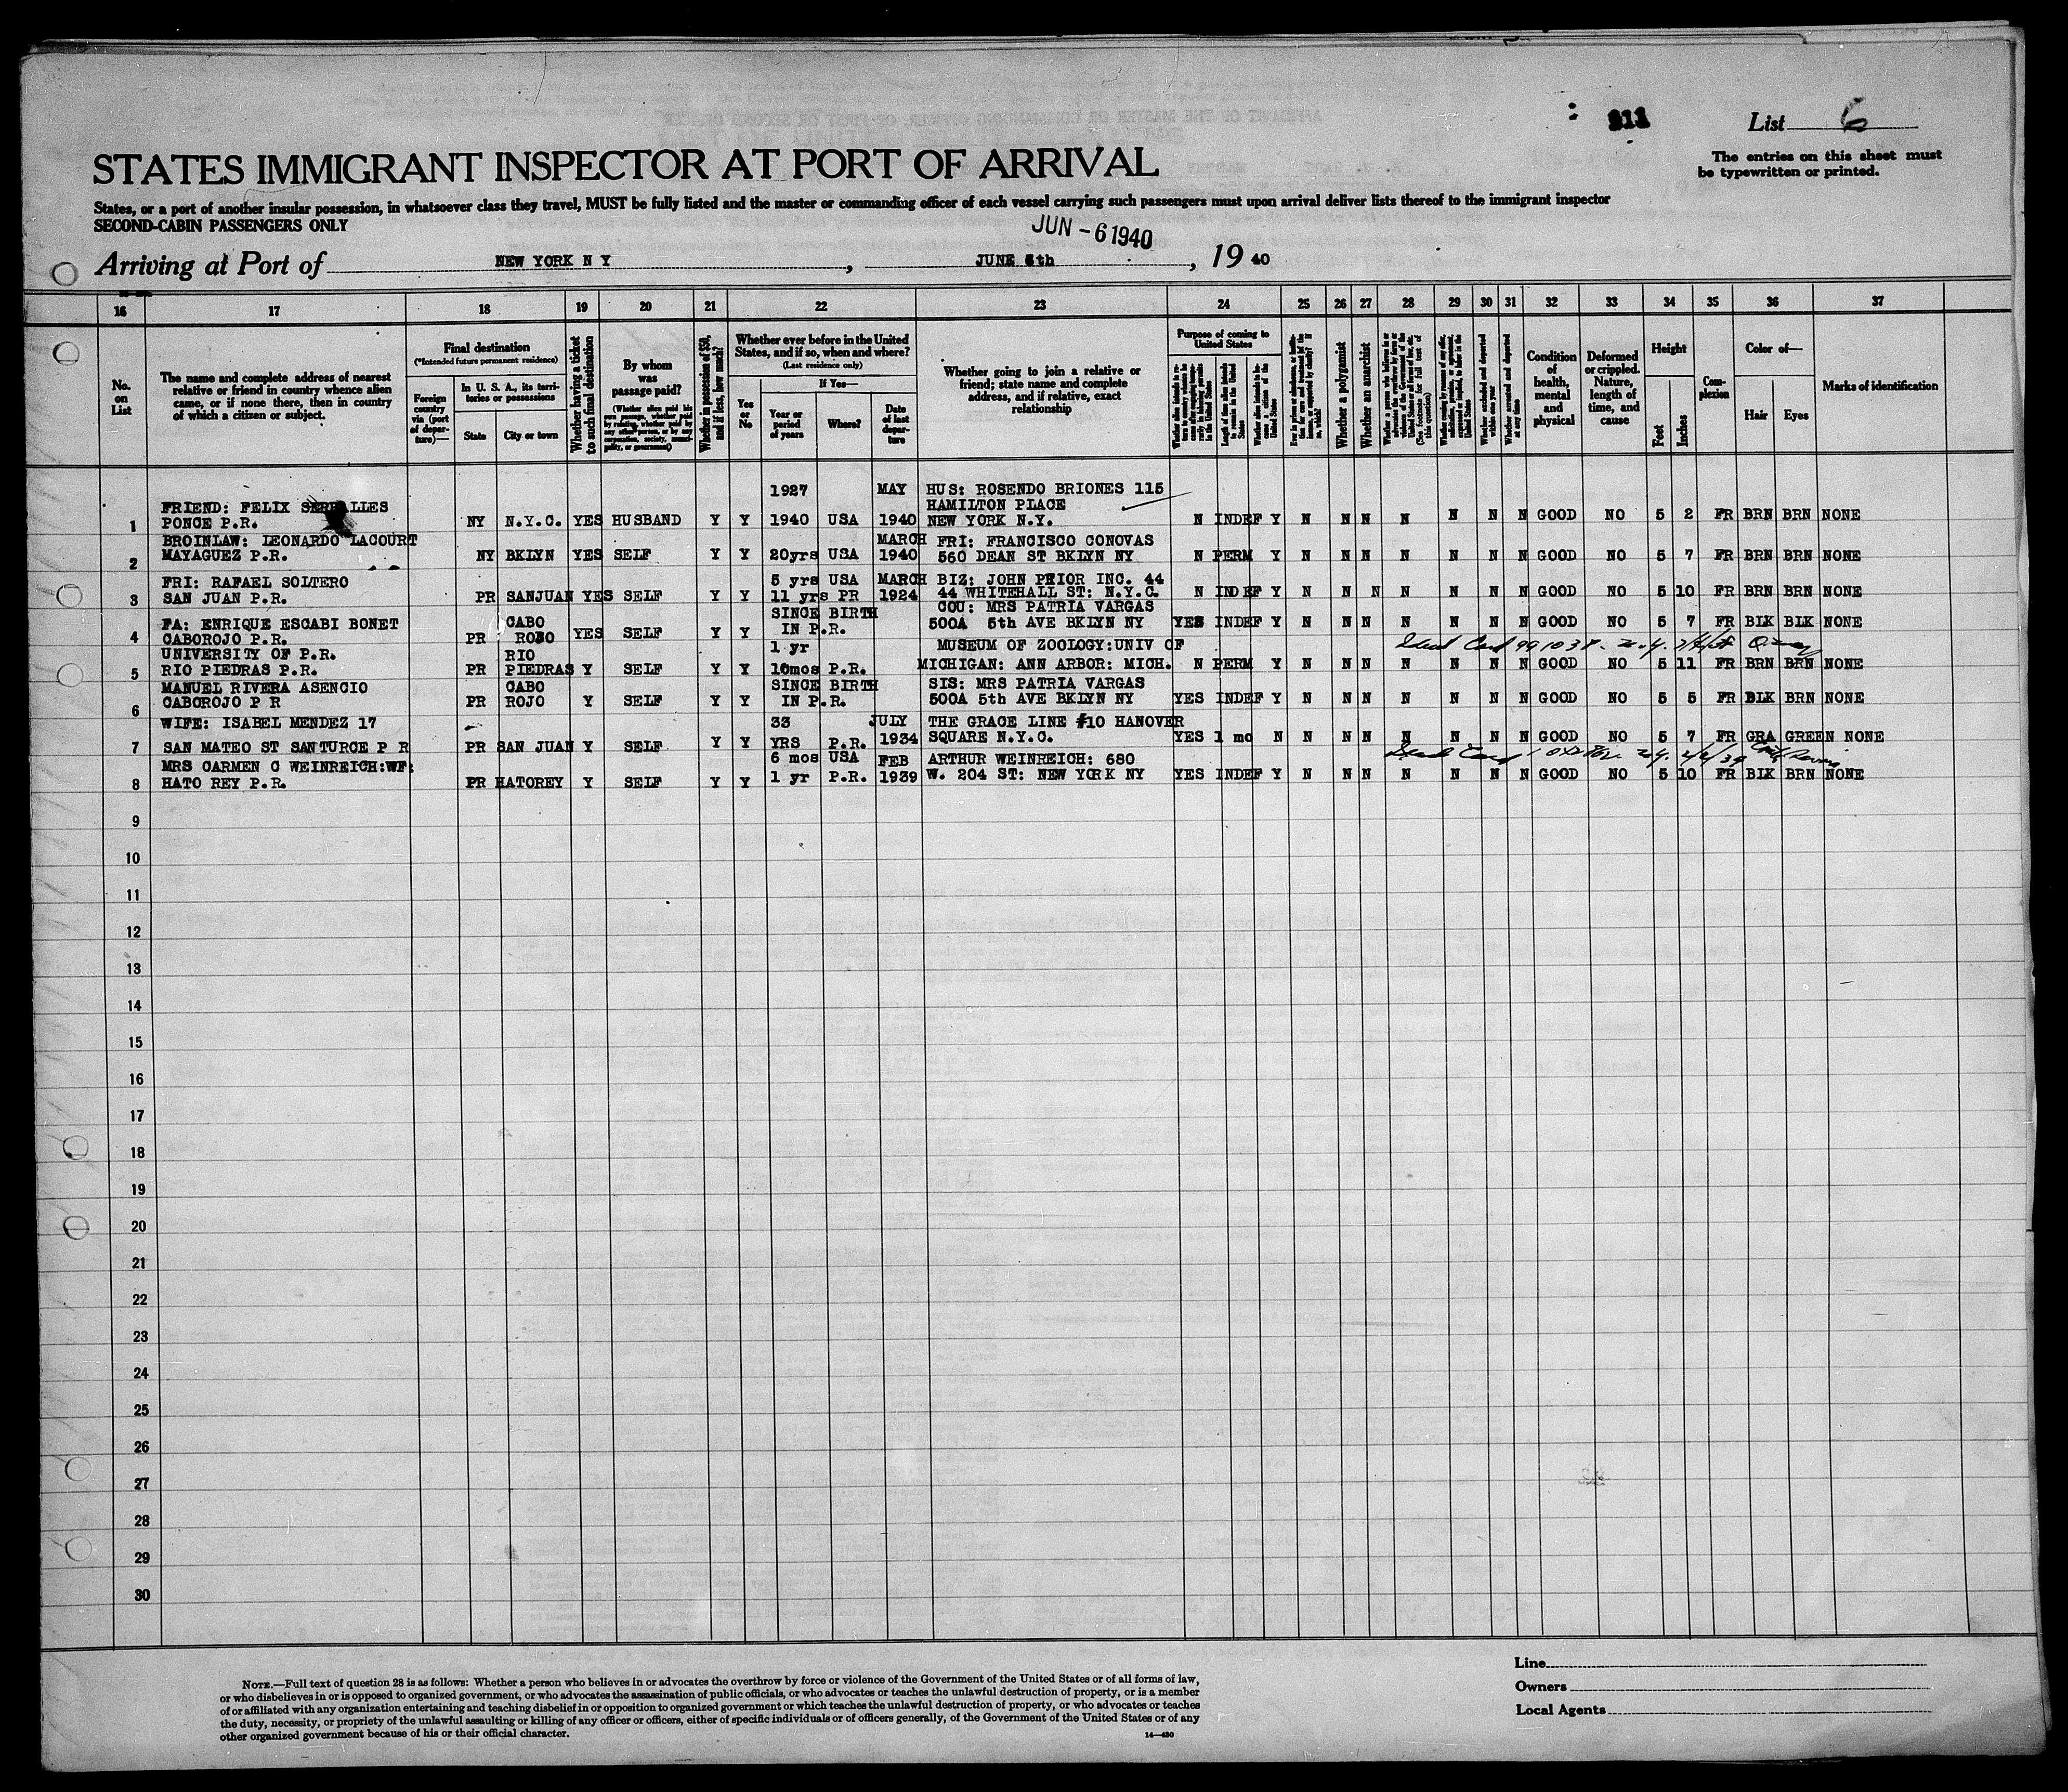 311
List 6
The entries on this sheet must
be typewritten or printed.
STATES IMMIGRANT INSPECTOR AT PORT OF ARRIVAL
States, or a port of another insular possession, in whatsoever class they travel, MUST be fully listed and the master or commanding officer of each vessel carrying such passengers must upon arrival deliver lists thereof to the immigrant inspector
SECOND-CABIN PASSENGERS ONLY
JUN - 6 1940
Arriving at Port of NEW YORK N Y, JUNE 6th, 19 40
16 17 18 19 20 21 22 23 24 25 26 27 28 29 30 31 32 33 34 35 36 37
No. on List
The name and complete address of nearest relative or friend in country whence alien came, or if none there, then in country of which a citizen or subject.
Final destination
(*Intended future permanent residence)
Foreign country via (port of departure)—
In U. S. A., its territories or possessions
State
City or town
Whether having a ticket to such final destination
By whom was passage paid?
(Whether alien paid his own passage, whether paid by relative, whether paid by any other person, or by any corporation, society, municipality, or government)
Whether in possession of $50, and if less, how much?
Whether ever before in the United States, and if so, when and where?
(Last residence only)
Yes or No
If Yes—
Year or period of years
Where?
Date of last departure
Whether going to join a relative or friend; state name and complete address, and if relative, exact relationship
Purpose of coming to United States
Length of time alien intends to remain in the United States
Whether a polygamist
Whether an anarchist
(See footnote for full text of this question)
Whether excluded and deported within one year
Whether arrested and deported at any time
Condition of health, mental and physical
Deformed or crippled. Nature, length of time, and cause
Height
Feet
Inches
Complexion
Color of—
Hair
Eyes
Marks of identification
1 FRIND: FELIX SERRALLES PONCE P.R. NY N.Y.C. YES HUSBAND Y Y 1927 1940 USA MAY 1940 HUS: ROSENDO BRIONES 115 HAMILTON PLACE NEW YORK N.Y. N INDEF Y N N N N N N N GOOD NO 5 2 FR BRN BRN NONE
2 BROINLAW: LEONARDO LACOURT MAYAGUEZ P.R. NY BKLYN YES SELF Y Y 20yrs USA MARCH 1940 FRI: FRANCISCO CONOVAS 560 DEAN ST BKLYN NY N PERM Y N N N N N N N GOOD NO 5 7 FR BRN BRN NONE
3 FRI: RAFAEL SOLTERO SAN JUAN P.R. PR SANJUAN YES SELF Y Y 5 yrs USA 11 yrs PR MARCH 1924 BIZ: JOHN PRIOR INC. 44 44 WHITEHALL ST: N.Y.C. N INDEF Y N N N N N N N GOOD NO 5 10 FR BRN BRN NONE
4 FA: ENRIQUE ESCABI BONET CABOROJO P.R. PR CABO ROJO YES SELF Y Y SINCE BIRTH IN P.R. COU: MRS PATRIA VARGAS 500A 5th AVE BKLYN NY YES INDEF Y N N N N N N N GOOD NO 5 7 FR BLK BLK NONE
5 UNIVERSITY OF P.R. RIO PIEDRAS P.R. PR RIO PIEDRAS Y SELF Y Y 1 yr 10mos P.R. MUSEUM OF ZOOLOGY:UNIV OF MICHIGAN: ANN ARBOR: MICH. N PERM Y N N N N N N N GOOD NO 5 11 FR BRN BRN NONE
6 MANUEL RIVERA ASENCIO CABOROJO P R PR CABO ROJO Y SELF Y Y SINCE BIRTH IN P.R. SIS: MRS PATRIA VARGAS 500A 5th AVE BKLYN NY YES INDEF Y N N N N N N N GOOD NO 5 5 FR BLK BRN NONE
7 WIFE: ISABEL MENDEZ 17 SAN MATEO ST SANTURCE P R PR SAN JUAN Y SELF Y Y 33 YRS P.R. JULY 1934 THE GRACE LINE #10 HANOVER SQUARE N.Y.C. YES 1 mo N N N N N N N N GOOD NO 5 7 FR GRA GREEN NONE
8 MRS CARMEN C WEINREICH:WF: HATO REY P.R. PR HATOREY Y SELF Y Y 6 mos USA 1 yr P.R. FEB 1939 ARTHUR WEINREICH: 680 W. 204 ST: NEW YORK NY YES INDEF Y N N N N N N N GOOD NO 5 10 FR BLK BRN NONE
9
10
11
12
13
14
15
16
17
18
19
20
21
22
23
24
25
26
27
28
29
30
NOTE.—Full text of question 28 is as follows: Whether a person who believes in or advocates the overthrow by force or violence of the Government of the United States or of all forms of law,
or who disbelieves in or is opposed to organized government, or who advocates the assassination of public officials, or who advocates or teaches the unlawful destruction of property, or is a member
of or affiliated with any organization entertaining and teaching disbelief in or opposition to organized government or which teaches the unlawful destruction of property, or who advocates or teaches
the duty, necessity, or propriety of the unlawful assaulting or killing of any officer or officers, either of specific individuals or of officers generally, of the Government of the United States or of any
other organized government because of his or their official character.
14—430
Line
Owners
Local Agents